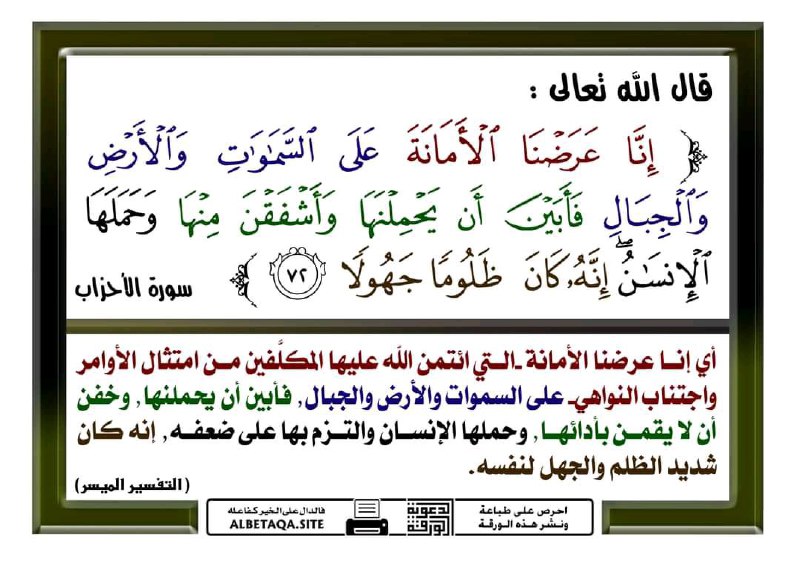 قال الله تعالى :
﴿ إِنَّا عَرَضْنَا ٱلْأَمَانَةَ عَلَى ٱلسَّمَٰوَٰتِ وَٱلْأَرْضِ
وَٱلْجِبَالِ فَأَبَيْنَ أَن يَحْمِلْنَهَا وَأَشْفَقْنَ مِنْهَا وَحَمَلَهَا
ٱلْإِنسَٰنُ ۖ إِنَّهُۥ كَانَ ظَلُومًا جَهُولًا ٧٢ ﴾ سورة الأحزاب
أي إنـا عرضنا الأمانة ـالـتي ائتمن الله عليها المكلَّفين مـن امتثال الأوامر
واجتناب النواهيـ على السموات والأرض والجبال, فأبين أن يحملنها, وخفن
أن لا يقمـن بأدائهـا, وحملها الإنسـان والتـزم بها على ضعفـه, إنه كان
شديد الظلم والجهل لنفسه.
(التفسير الميسر)
احرص على طباعة
ونشر هذه الورقـة
الورقة
الدعوية
فالدال على الخير كفاعله
ALBETAQA.SITE